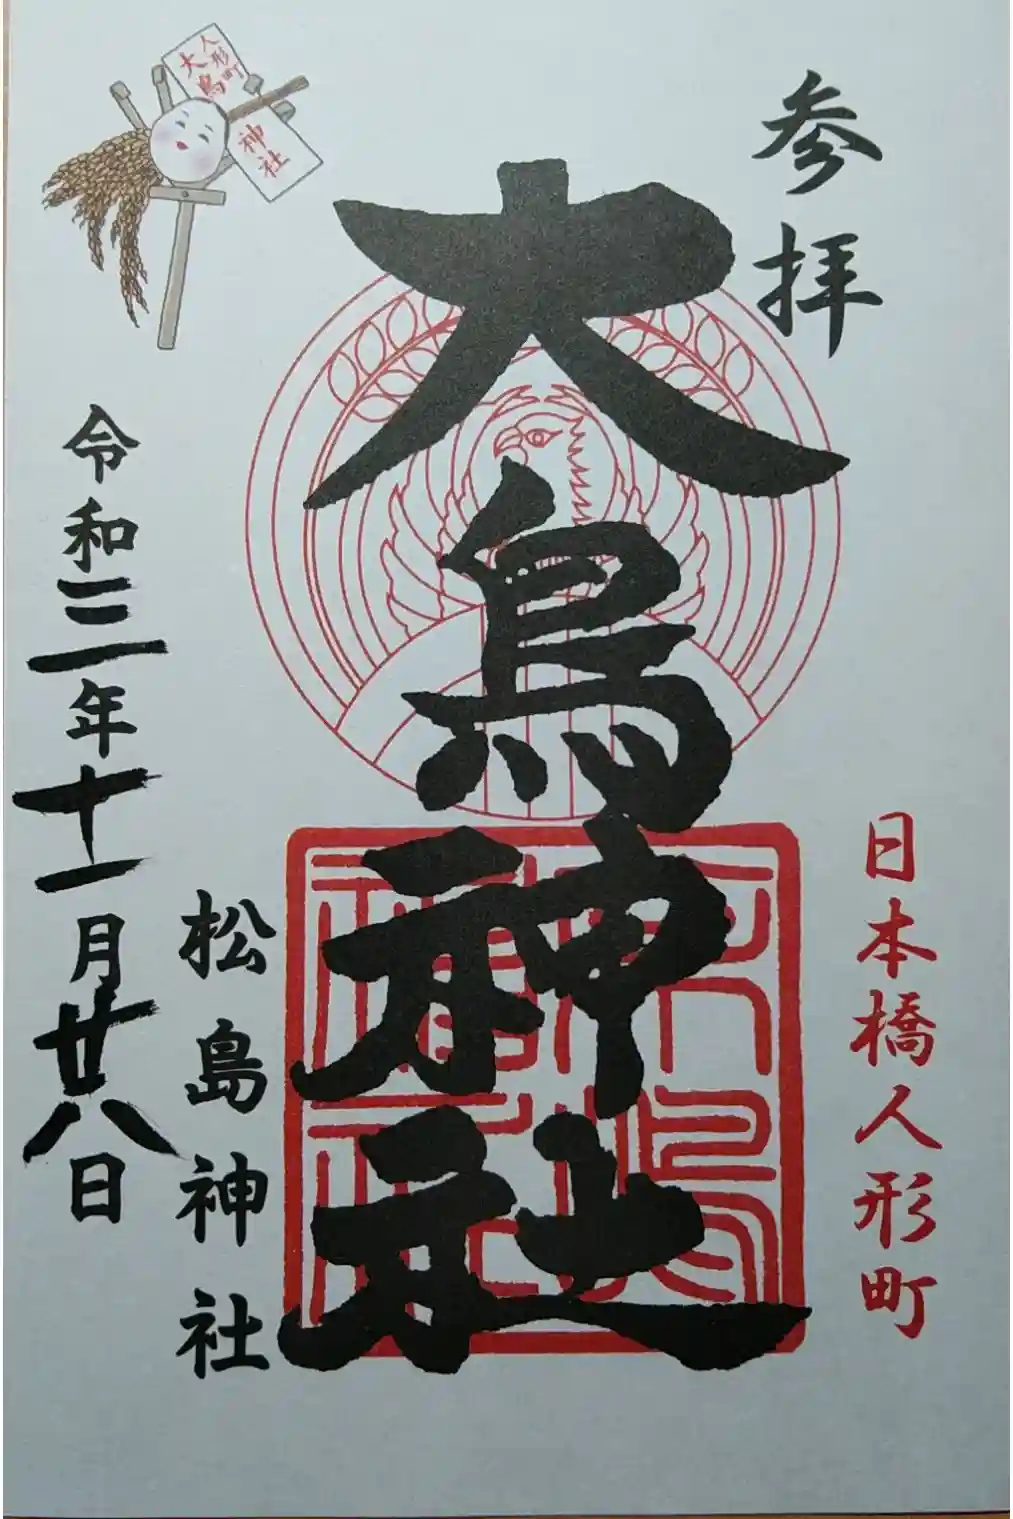 参拝
日本橋人形町
大鳥神社
大鳥神社
松島神社
令和三年十一月廿八日
人形町
大鳥
神社